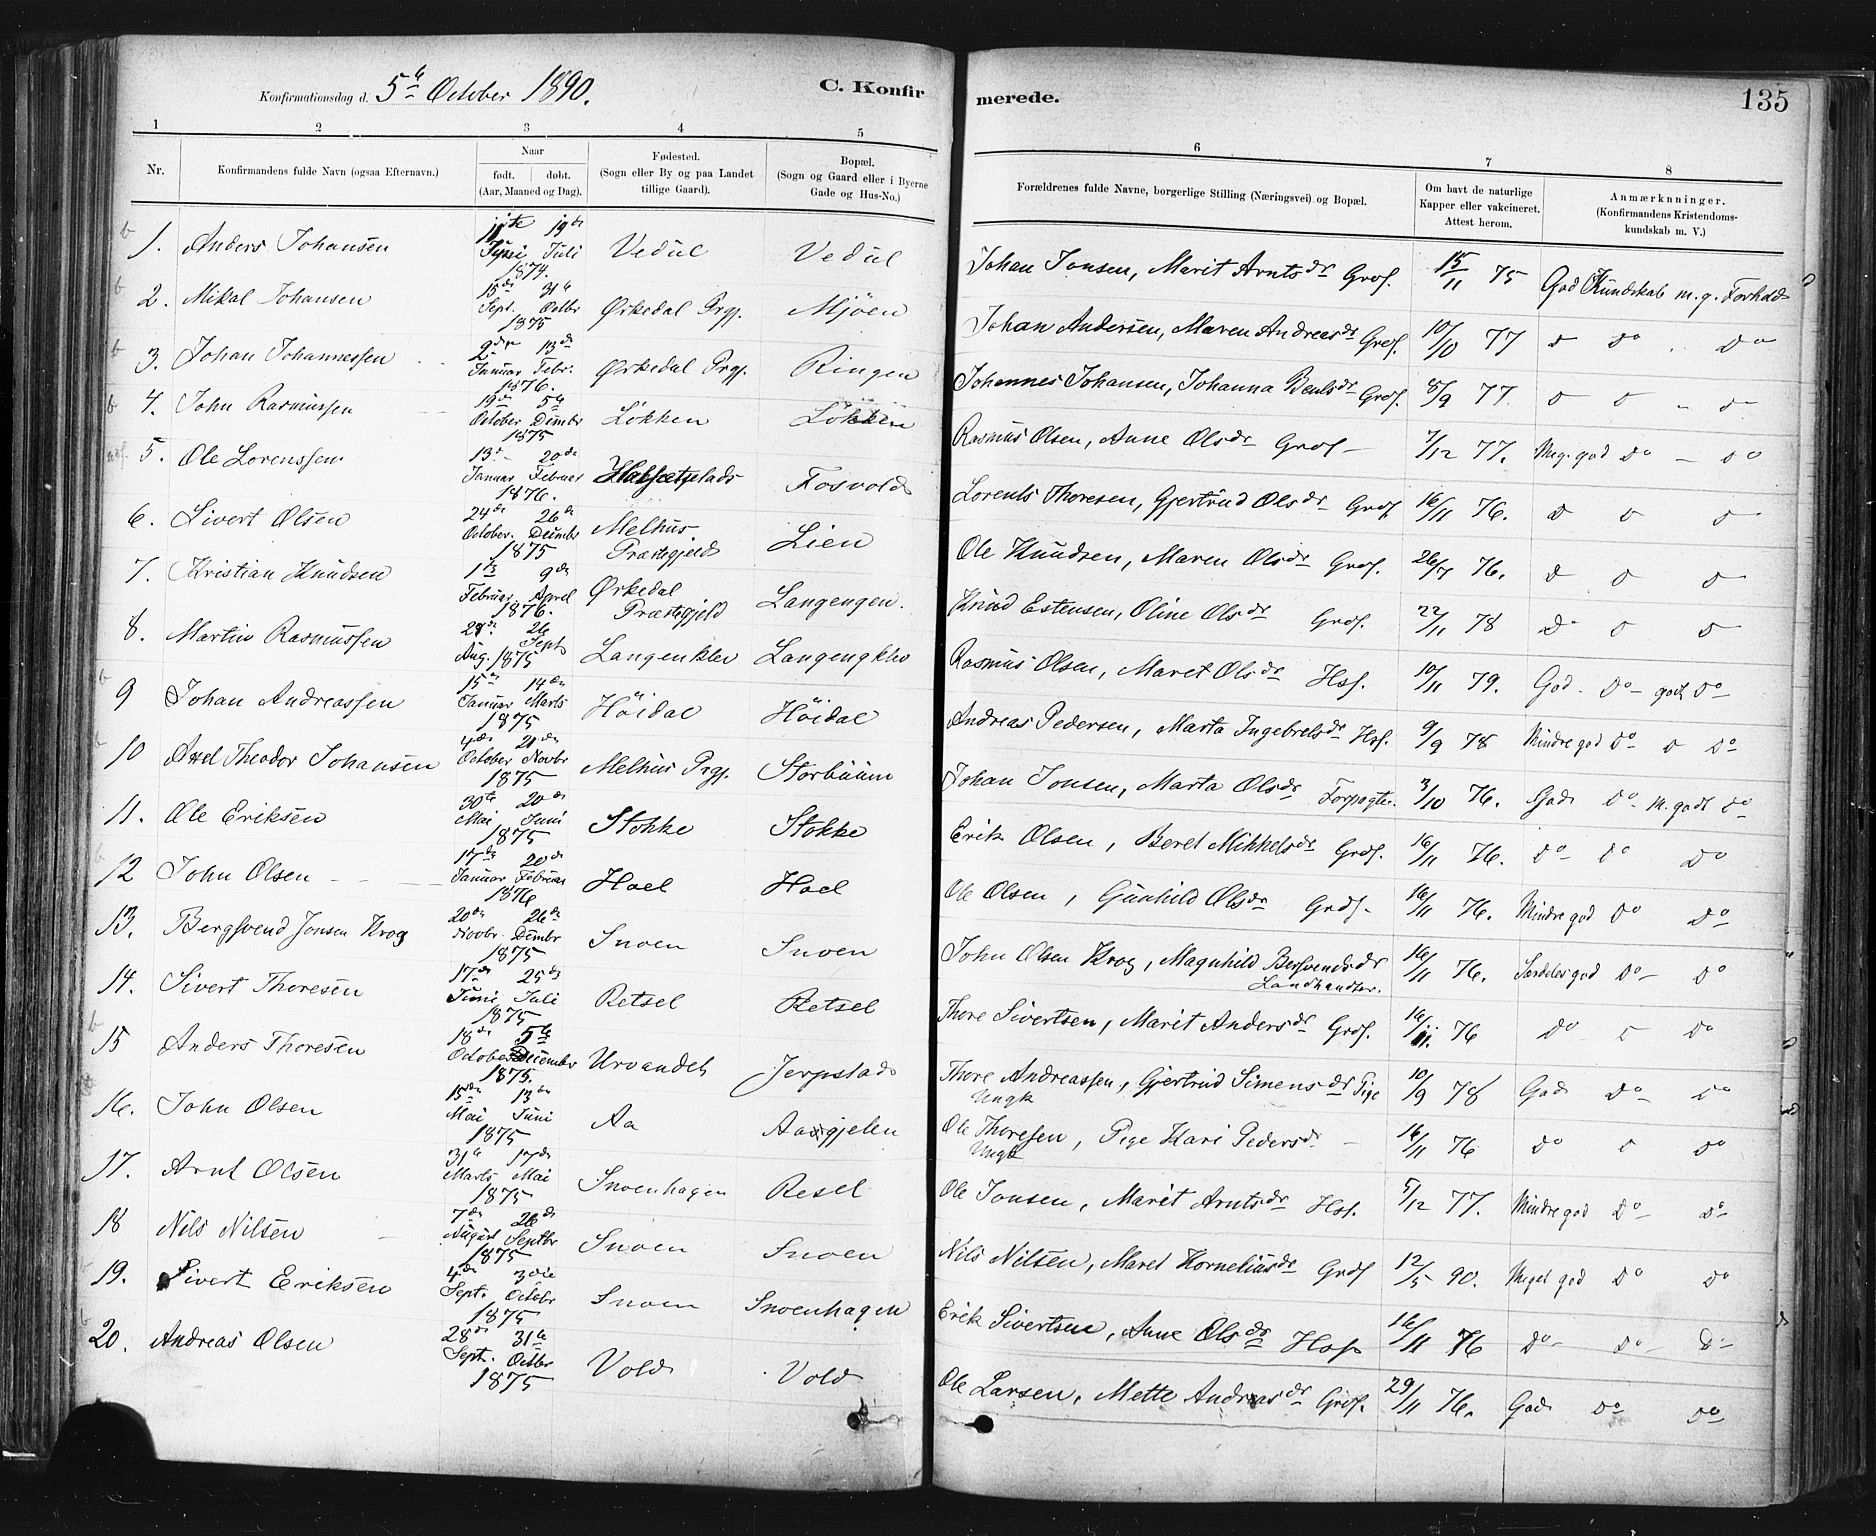 Konfirmationsdag d. 5te October 1890. C. Konfirmerede. 135
1 2 3 4 5 6 7 8
Nr. Konfirmandens fulde Navn (ogsaa Efternavn.) Naar født. døbt. (Aar, Maaned og Dag). Fødested. (Sogn eller By og paa Landet tillige Gaard). Bopæl. (Sogn og Gaard eller i Byerne Gade og Hus-No.) Forældrenes fulde Navne, borgerlige Stilling (Næringsvei) og Bopæl. Om havt de naturlige Kapper eller vakcineret. Attest herom. Anmærknninger. (Konfirmandens Kristendoms-kundskab m. V.)
1. Anders Johansen 11te Juni 19de Juli 1874. Vedul Vedul Johan Jonsen, Marit Arntsdr Grdf. 15/11 75 God Kundskab m. g. Forhold
2. Mikal Johansen 15de Sept. 31te Octbr 1875 Ørkedal Prgj. Mjöen Johan Andersen, Maren Andreasdr Grdf. 10/10 77 do do do
3. Johan Johannessen 2den Januar 13de Febr. 1876. Ørkedal Prgj. Ringen Johannes Johansen, Johanna Bentsdr Grdf. 8/9 77. do do do
4. John Rasmussen 19de October 5te Dcmbr 1875 Lökken Lökken Rasmus Olsen, Anne Olsdr Grdf 7/12 77. Meg. god do do
5. Ole Lorenssen 13de Januar 20de Februar 1876. Fosvold Lorents Thoresen, Gjertrud Olsdr Grdf 16/11 76. do do do
6. Sivert Olsen 24de October. 26de Dcmbr 1875 Melhus Præstegjeld Lien Ole Knudsen, Maren Olsdr Grdf. 26/7 76. do do do
7. Kristian Knudsen 1ste Februar 9de April 1876. Ørkedal Præstegjeld Langengen. Knud Estensen, Oline Olsdr Grdf. 22/11 78 do do do
8. Martin Rasmussen Aug. 26 Sept 1875 Langenklev Langengklev Rasmus Olsen, Maret Olsdr Hsf. 10/11 79. God do godt do
9 Johan Andreassen 15de Januar 14de Marts 1875 Höidal Höidal Andreas Pedersen, Marta Ingebretsdr Hsf. 9/9 78 Mindre god do do do
10 Axel Theodor Johansen 4de October 21de Novbr 1875 Melhus Prgj. Storbuum Johan Jonsen, Marta Olsdr Forpagter. 3/10 76. God do m. godt do
11. Ole Eriksen 30te Mai 20de Juni 1875 Stokke Stokke Erik Olsen, Beret Mikkelsdr Grdf. 16/11 76. do do do
12 John Olsen 17de Januar 20de Februar 1876 Hoel Hoel Ole Olsen, Gunhild Olsdr Grdf. 16/11 76. Mindre god do do
13. Bergsvend Jonsen Krog 20de Novbr. 26de Dcmbr 1875 Snoen Snoen John Olsen Krog, Magnhild Bersvendsdr Landhandler. 16/11 76. Særdeles god do do
14. Sivert Thoresen 17de Juni 25de Juli 1875 Retsel Retsel Thore Sivertsen, Marit Andersdr Grdf. 16/11. 76 do do do
15 Anders Thoresen 18de October 5te December 1875. Urvandet Jerpstad Thore Andreassen, Ungk Gjertrud Simensdr Pige 10/9 78 God do do
16. John Olsen 15de Mai 13de Juni 1875 Aa Aasgjelen Ole Thoresen, Ungk Pige Kari Pedersdr 16/11 76 do do do
17. Arnt Olsen 31te Marts 17de Mai 1875 Snoenhagen Resel Ole Jonsen, Marit Arntsdr Hsf. 5/12 77. Mindre god do do
18 Nils Nilsen 7de August 26de Septbr 1875 Snoen Snoen Nils Nilsen, Maret Korneliusdr Grdf 12/5 90. Meget god do do
19. Sivert Eriksen 4de Sept. 3die Octobr 1875 Snoen Snoenhagen Erik Sivertsen, Anne Olsdr Hsf 16/11 76 do do do
20. Andreas Olsen 28de Sept. 31te Octbr 1875 Vold Vold Ole Larsen, Mette Andreasdr Grdf. 29/11 76. God do do